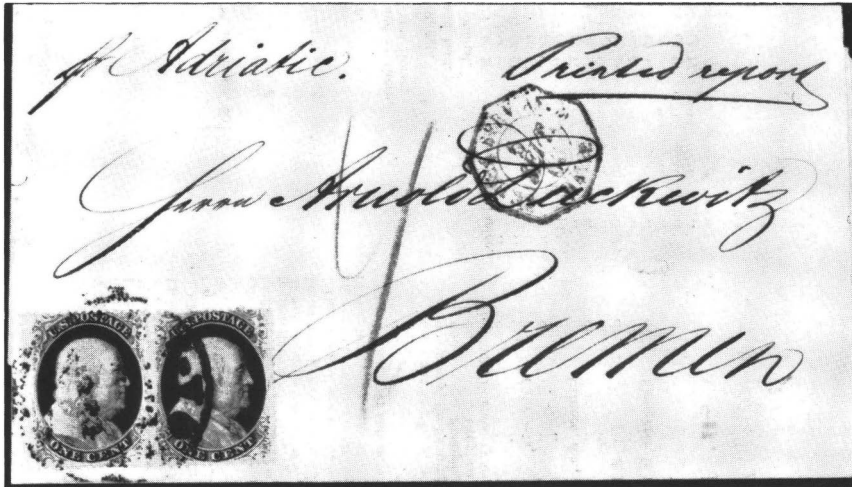 pr Adriatic.
Printed report
Herrn Arnold Duckwitz
Bremen
U.S. POSTAGE
ONE CENT
U.S. POSTAGE
ONE CENT